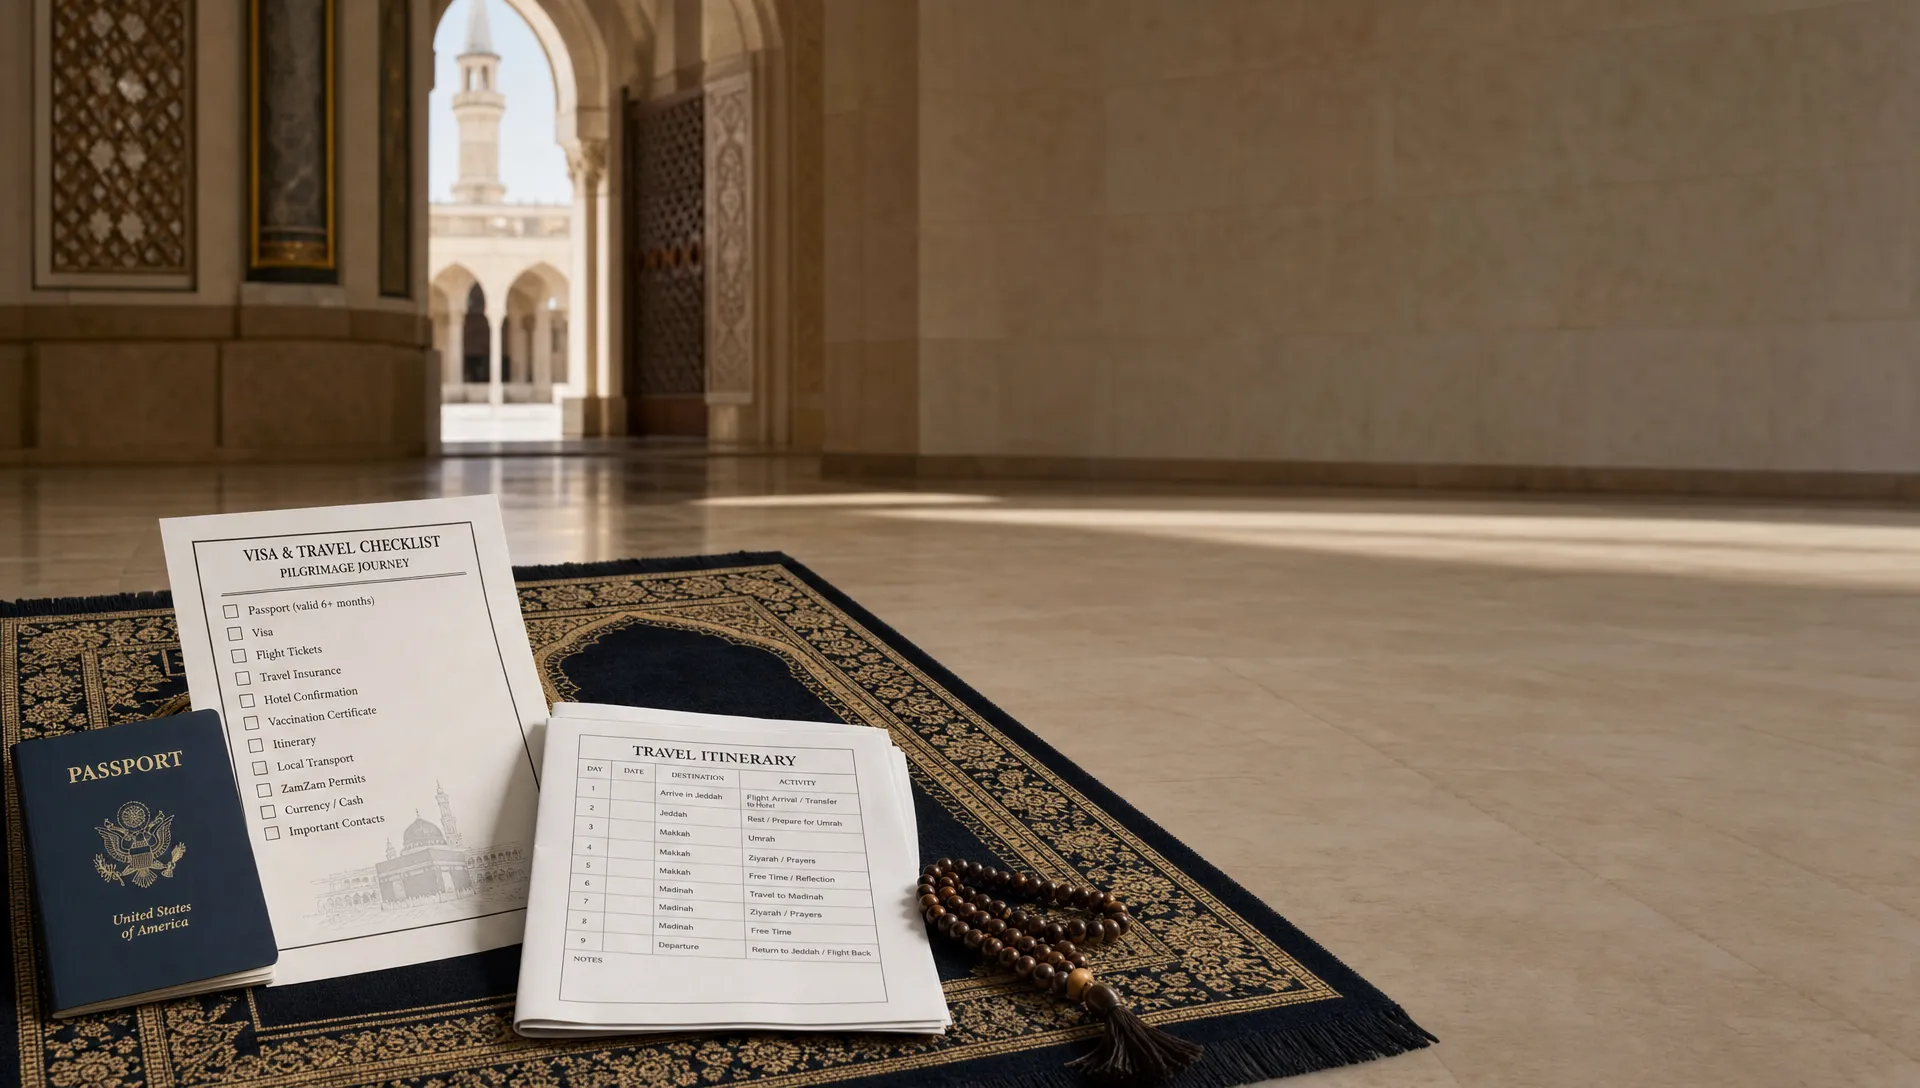 VISA & TRAVEL CHECKLIST
PILGRIMAGE JOURNEY
Passport (valid 6+ months)
Visa
Flight Tickets
Travel Insurance
Hotel Confirmation
Vaccination Certificate
Itinerary
Local Transport
ZamZam Permits
Currency / Cash
Important Contacts
PASSPORT
United States
of America
TRAVEL ITINERARY
DAY DATE DESTINATION ACTIVITY
1 Arrive in Jeddah Flight Arrival / Transfer
to Hotel
2 Jeddah Rest / Prepare for Umrah
3 Makkah Umrah
4 Makkah Ziyarah / Prayers
5 Makkah Free Time / Reflection
6 Madinah Travel to Madinah
7 Madinah Ziyarah / Prayers
8 Madinah Free Time
9 Departure Return to Jeddah / Flight Back
NOTES